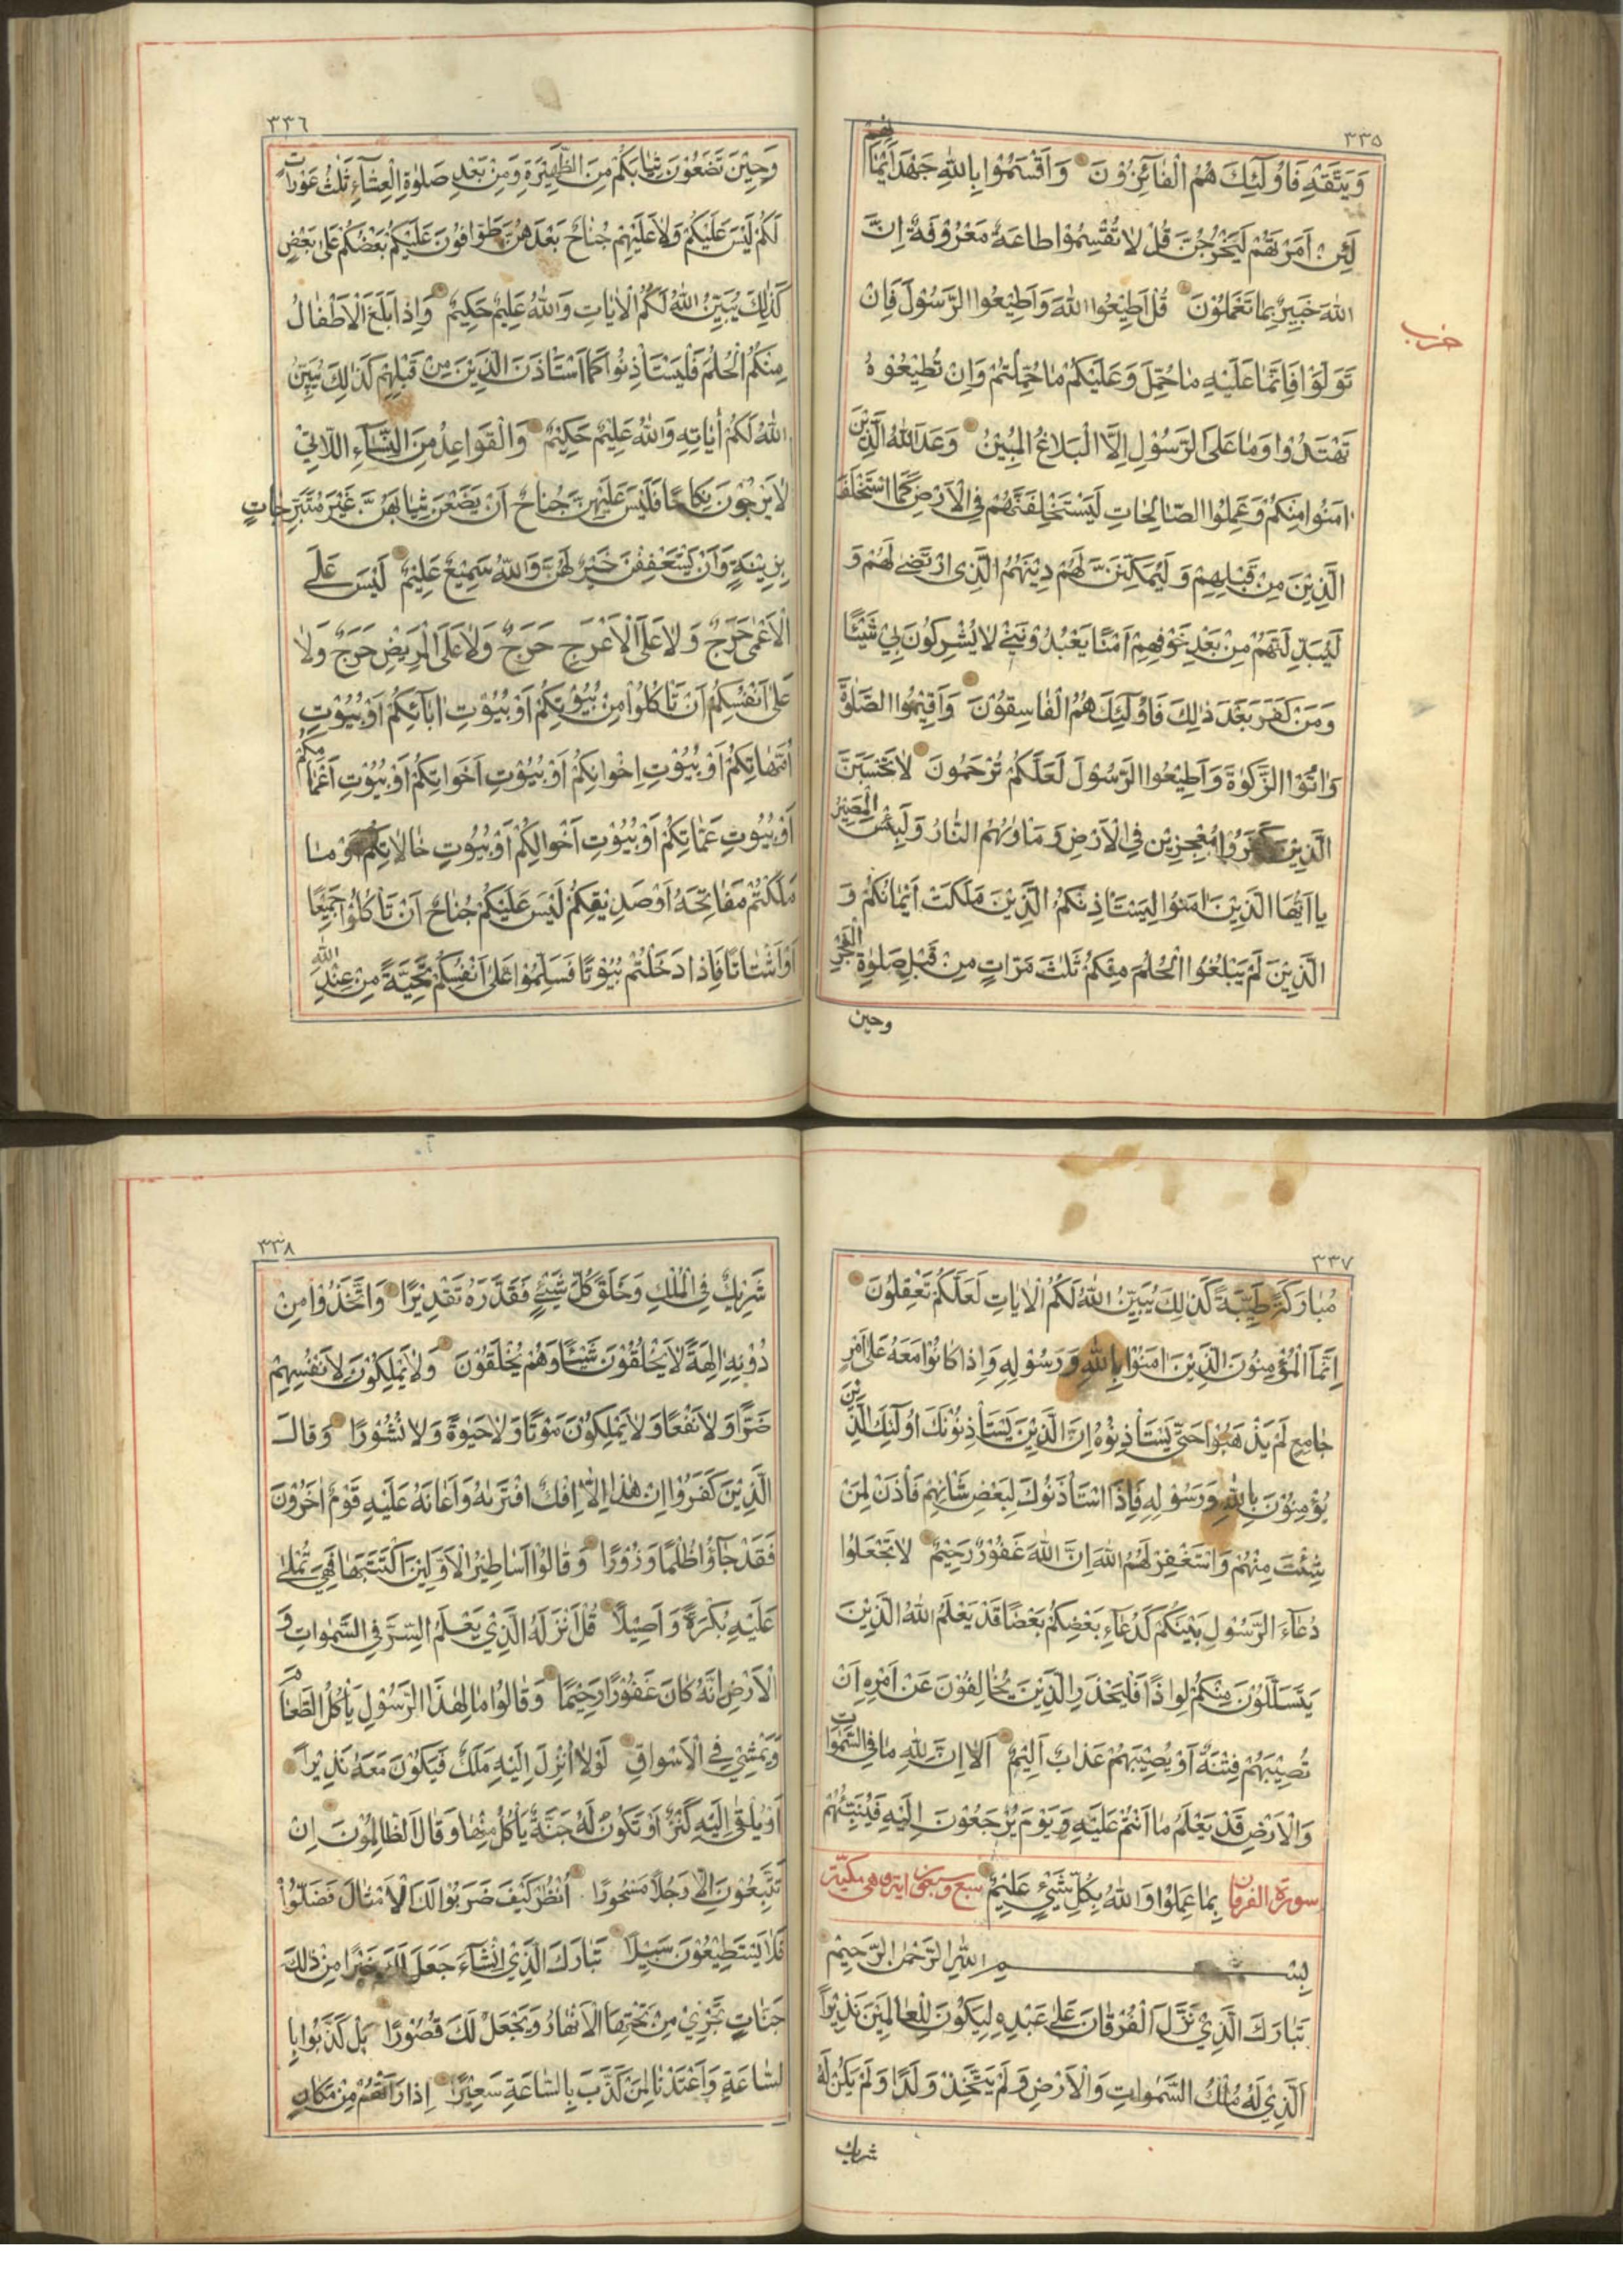 ٣٣٥
وَيَتَّقْهِ فَاُولٰٓئِكَ هُمُ الْفَآئِزُوْنَ وَاَقْسَمُوْا بِاللّٰهِ جَهْدَ اَيْمَانِهِمْ
لَئِنْ اَمَرْتَهُمْ لَيَخْرُجُنَّ قُلْ لَا تُقْسِمُوْا طَاعَةٌ مَعْرُوْفَةٌ اِنَّ
اللّٰهَ خَبِيْرٌ بِمَا تَعْمَلُوْنَ قُلْ اَطِيْعُوا اللّٰهَ وَاَطِيْعُوا الرَّسُوْلَ فَاِنْ
حزب
تَوَلَّوْا فَاِنَّمَا عَلَيْهِ مَا حُمِّلَ وَعَلَيْكُمْ مَا حُمِّلْتُمْ وَاِنْ تُطِيْعُوْهُ
تَهْتَدُوْا وَمَا عَلَى الرَّسُوْلِ اِلَّا الْبَلَاغُ الْمُبِيْنُ وَعَدَ اللّٰهُ الَّذِيْنَ
اٰمَنُوا مِنْكُمْ وَعَمِلُوا الصَّالِحَاتِ لَيَسْتَخْلِفَنَّهُمْ فِي الْاَرْضِ كَمَا اسْتَخْلَفَ
الَّذِيْنَ مِنْ قَبْلِهِمْ وَلَيُمَكِّنَنَّ لَهُمْ دِيْنَهُمُ الَّذِى ارْتَضٰى لَهُمْ وَ
لَيُبَدِّلَنَّهُمْ مِنْ بَعْدِ خَوْفِهِمْ اَمْنًا يَعْبُدُوْنَنِيْ لَا يُشْرِكُوْنَ بِيْ شَيْئًا
وَمَنْ كَفَرَ بَعْدَ ذٰلِكَ فَاُولٰٓئِكَ هُمُ الْفَاسِقُوْنَ وَاَقِيْمُوا الصَّلٰوةَ
وَاٰتُوا الزَّكٰوةَ وَاَطِيْعُوا الرَّسُوْلَ لَعَلَّكُمْ تُرْحَمُوْنَ لَا تَحْسَبَنَّ
الَّذِيْنَ كَفَرُوْا مُعْجِزِيْنَ فِي الْاَرْضِ وَمَاْوٰىهُمُ النَّارُ وَلَبِئْسَ الْمَصِيْرُ
يَا اَيُّهَا الَّذِيْنَ اٰمَنُوْا لِيَسْتَاْذِنْكُمُ الَّذِيْنَ مَلَكَتْ اَيْمَانُكُمْ وَ
الَّذِيْنَ لَمْ يَبْلُغُوا الْحُلُمَ مِنْكُمْ ثَلٰثَ مَرَّاتٍ مِنْ قَبْلِ صَلٰوةِ الْفَجْرِ
وحين
٣٣٦
وَحِيْنَ تَضَعُوْنَ ثِيَابَكُمْ مِنَ الظَّهِيْرَةِ وَمِنْ بَعْدِ صَلٰوةِ الْعِشَآءِ ثَلٰثُ عَوْرَاتٍ
لَكُمْ لَيْسَ عَلَيْكُمْ وَلَا عَلَيْهِمْ جُنَاحٌ بَعْدَهُنَّ طَوَّافُوْنَ عَلَيْكُمْ بَعْضُكُمْ عَلٰى بَعْضٍ
كَذٰلِكَ يُبَيِّنُ اللّٰهُ لَكُمُ الْاٰيَاتِ وَاللّٰهُ عَلِيْمٌ حَكِيْمٌ وَاِذَا بَلَغَ الْاَطْفَالُ
مِنْكُمُ الْحُلُمَ فَلْيَسْتَأْذِنُوْا كَمَا اسْتَأْذَنَ الَّذِيْنَ مِنْ قَبْلِهِمْ كَذٰلِكَ يُبَيِّنُ
اللّٰهُ لَكُمْ اٰيَاتِهِ وَاللّٰهُ عَلِيْمٌ حَكِيْمٌ وَالْقَوَاعِدُ مِنَ النِّسَآءِ اللَّاتِيْ
لَا يَرْجُوْنَ نِكَاحًا فَلَيْسَ عَلَيْهِنَّ جُنَاحٌ اَنْ يَضَعْنَ ثِيَابَهُنَّ غَيْرَ مُتَبَرِّجَاتٍ
بِزِيْنَةٍ وَاَنْ يَسْتَعْفِفْنَ خَيْرٌ لَهُنَّ وَاللّٰهُ سَمِيْعٌ عَلِيْمٌ لَيْسَ عَلَى
الْاَعْمٰى حَرَجٌ وَلَا عَلَى الْاَعْرَجِ حَرَجٌ وَلَا عَلَى الْمَرِيْضِ حَرَجٌ وَلَا
عَلٰى اَنْفُسِكُمْ اَنْ تَاْكُلُوْا مِنْ بُيُوْتِكُمْ اَوْ بُيُوْتِ اٰبَآئِكُمْ اَوْ بُيُوْتِ
اُمَّهَاتِكُمْ اَوْ بُيُوْتِ اِخْوَانِكُمْ اَوْ بُيُوْتِ اَخَوَاتِكُمْ اَوْ بُيُوْتِ اَعْمَامِكُمْ
اَوْ بُيُوْتِ عَمَّاتِكُمْ اَوْ بُيُوْتِ اَخْوَالِكُمْ اَوْ بُيُوْتِ خَالَاتِكُمْ اَوْ مَا
مَلَكْتُمْ مَفَاتِحَهُ اَوْ صَدِيْقِكُمْ لَيْسَ عَلَيْكُمْ جُنَاحٌ اَنْ تَاْكُلُوْا جَمِيْعًا
اَوْ اَشْتَاتًا فَاِذَا دَخَلْتُمْ بُيُوْتًا فَسَلِّمُوْا عَلٰى اَنْفُسِكُمْ تَحِيَّةً مِنْ عِنْدِ اللّٰهِ
٣٣٧
مُبَارَكَةً طَيِّبَةً كَذٰلِكَ يُبَيِّنُ اللّٰهُ لَكُمُ الْاٰيَاتِ لَعَلَّكُمْ تَعْقِلُوْنَ
اِنَّمَا الْمُؤْمِنُوْنَ الَّذِيْنَ اٰمَنُوْا بِاللّٰهِ وَرَسُوْلِهِ وَاِذَا كَانُوْا مَعَهُ عَلٰى اَمْرٍ
جَامِعٍ لَمْ يَذْهَبُوْا حَتّٰى يَسْتَأْذِنُوْهُ اِنَّ الَّذِيْنَ يَسْتَأْذِنُوْنَكَ اُولٰٓئِكَ الَّذِيْنَ
يُؤْمِنُوْنَ بِاللّٰهِ وَرَسُوْلِهِ فَاِذَا اسْتَأْذَنُوْكَ لِبَعْضِ شَاْنِهِمْ فَأْذَنْ لِمَنْ
شِئْتَ مِنْهُمْ وَاسْتَغْفِرْ لَهُمُ اللّٰهَ اِنَّ اللّٰهَ غَفُوْرٌ رَحِيْمٌ لَا تَجْعَلُوْا
دُعَآءَ الرَّسُوْلِ بَيْنَكُمْ كَدُعَآءِ بَعْضِكُمْ بَعْضًا قَدْ يَعْلَمُ اللّٰهُ الَّذِيْنَ
يَتَسَلَّلُوْنَ مِنْكُمْ لِوَاذًا فَلْيَحْذَرِ الَّذِيْنَ يُخَالِفُوْنَ عَنْ اَمْرِهِ اَنْ
تُصِيْبَهُمْ فِتْنَةٌ اَوْ يُصِيْبَهُمْ عَذَابٌ اَلِيْمٌ اَلَا اِنَّ لِلّٰهِ مَا فِي السَّمٰوَاتِ
وَالْاَرْضِ قَدْ يَعْلَمُ مَا اَنْتُمْ عَلَيْهِ وَيَوْمَ يُرْجَعُوْنَ اِلَيْهِ فَيُنَبِّئُهُمْ
سورة الفرقان بِمَا عَمِلُوْا وَاللّٰهُ بِكُلِّ شَيْئٍ عَلِيْمٌ سبع وسبعون اية وهى مكية
بِسْمِ اللّٰهِ الرَّحْمٰنِ الرَّحِيْمِ
تَبَارَكَ الَّذِيْ نَزَّلَ الْفُرْقَانَ عَلٰى عَبْدِهِ لِيَكُوْنَ لِلْعَالَمِيْنَ نَذِيْرًا
اَلَّذِيْ لَهُ مُلْكُ السَّمٰوَاتِ وَالْاَرْضِ وَلَمْ يَتَّخِذْ وَلَدًا وَلَمْ يَكُنْ لَهُ
شريك
٣٣٨
شَرِيْكٌ فِي الْمُلْكِ وَخَلَقَ كُلَّ شَيْئٍ فَقَدَّرَهُ تَقْدِيْرًا وَاتَّخَذُوْا مِنْ
دُوْنِهِ اٰلِهَةً لَا يَخْلُقُوْنَ شَيْئًا وَهُمْ يُخْلَقُوْنَ وَلَا يَمْلِكُوْنَ لِاَنْفُسِهِمْ
ضَرًّا وَلَا نَفْعًا وَلَا يَمْلِكُوْنَ مَوْتًا وَلَا حَيٰوةً وَلَا نُشُوْرًا وَقَالَ
الَّذِيْنَ كَفَرُوْا اِنْ هٰذَا اِلَّا اِفْكٌ افْتَرٰىهُ وَاَعَانَهُ عَلَيْهِ قَوْمٌ اٰخَرُوْنَ
فَقَدْ جَآؤُا ظُلْمًا وَزُوْرًا وَقَالُوْا اَسَاطِيْرُ الْاَوَّلِيْنَ اكْتَتَبَهَا فَهِيَ تُمْلٰى
عَلَيْهِ بُكْرَةً وَاَصِيْلًا قُلْ اَنْزَلَهُ الَّذِيْ يَعْلَمُ السِّرَّ فِي السَّمٰوَاتِ وَ
الْاَرْضِ اِنَّهُ كَانَ غَفُوْرًا رَحِيْمًا وَقَالُوْا مَا لِهٰذَا الرَّسُوْلِ يَاْكُلُ الطَّعَامَ
وَيَمْشِيْ فِي الْاَسْوَاقِ لَوْلَا اُنْزِلَ اِلَيْهِ مَلَكٌ فَيَكُوْنَ مَعَهُ نَذِيْرًا
اَوْ يُلْقٰى اِلَيْهِ كَنْزٌ اَوْ تَكُوْنُ لَهُ جَنَّةٌ يَاْكُلُ مِنْهَا وَقَالَ الظَّالِمُوْنَ اِنْ
تَتَّبِعُوْنَ اِلَّا رَجُلًا مَسْحُوْرًا اُنْظُرْ كَيْفَ ضَرَبُوْا لَكَ الْاَمْثَالَ فَضَلُّوْا
فَلَا يَسْتَطِيْعُوْنَ سَبِيْلًا تَبَارَكَ الَّذِيْ اِنْ شَآءَ جَعَلَ لَكَ خَيْرًا مِنْ ذٰلِكَ
جَنَّاتٍ تَجْرِيْ مِنْ تَحْتِهَا الْاَنْهَارُ وَيَجْعَلْ لَكَ قُصُوْرًا بَلْ كَذَّبُوْا بِا
لسَّاعَةِ وَاَعْتَدْنَا لِمَنْ كَذَّبَ بِالسَّاعَةِ سَعِيْرًا اِذَا رَاَتْهُمْ مِنْ مَكَانٍ